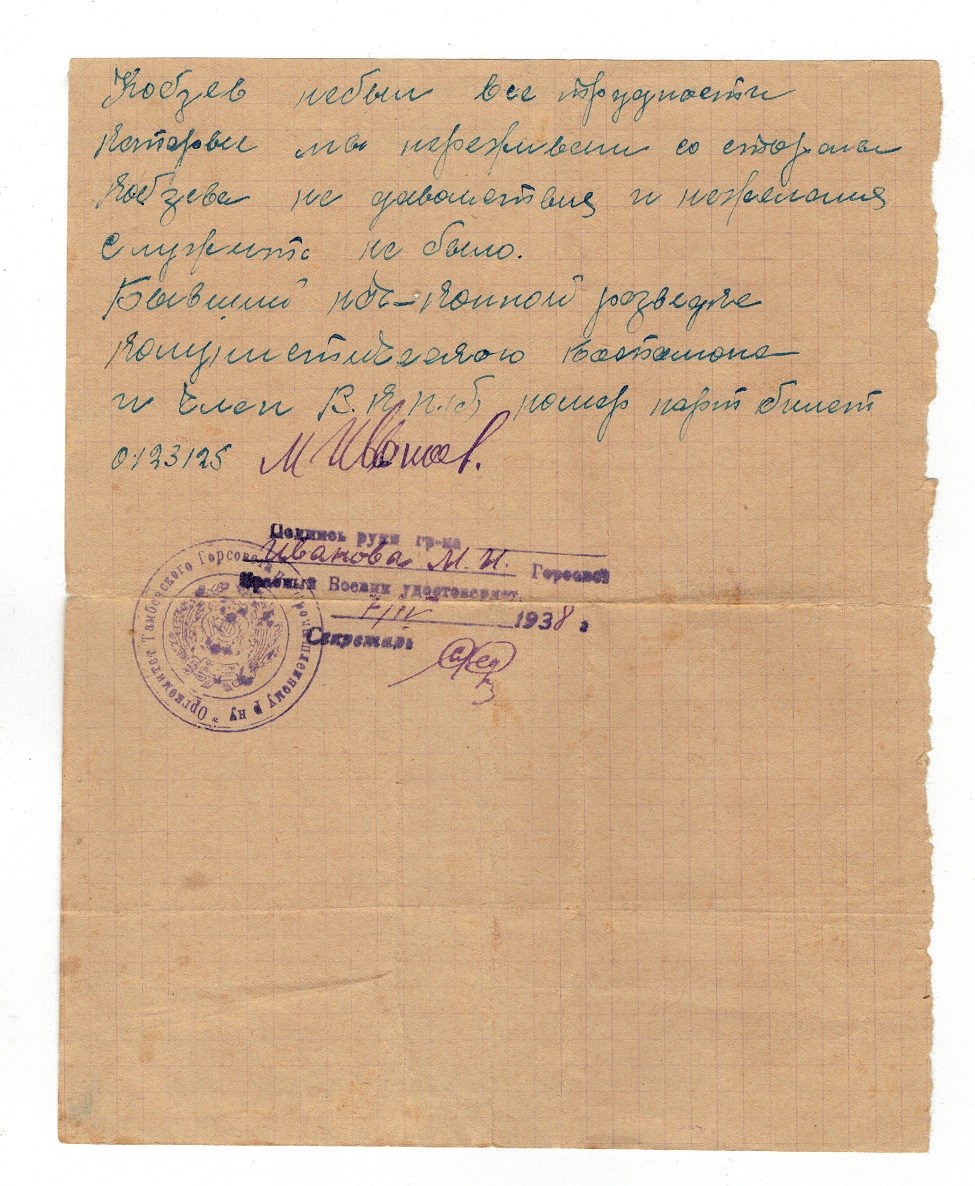 Кобзев небыл все трудности
которые мы переживали со стороны
Кобзева не давольствия и нежелания
служить не было.
Бывший конной разведке
Комунистического Баталиона
и член В.К.П.(б) номер парт билет
0123125 М Иванов.
Подпись руки гр-на
Иванова М. И. Горсовет
Красный Боевик удостоверяет.
1938 г
Секретарь
* Оргкомитет Тамбовского Горсовета по Промышленному р-ну